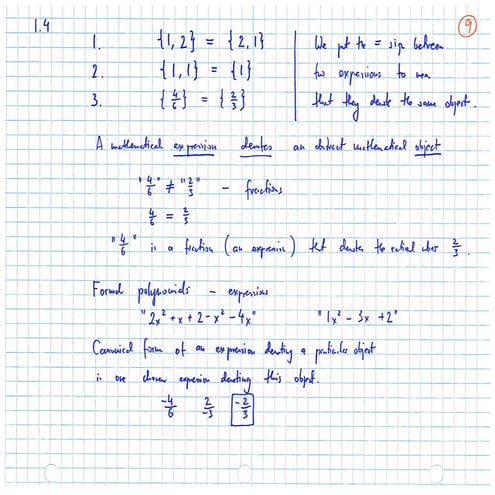 1.4
9
1. {1, 2} = {2, 1} We put the = sign between
2. {1, 1} = {1} two expressions to mean
3. {4/6} = {2/3} that they denote the same object.
A mathematical expression denotes an abstract mathematical object
"4/6" ≠ "2/3" – fractions
4/6 = 2/3
"4/6" is a fraction (an expression) that denotes the rational number 2/3.
Formal polynomials – expressions
"2x² + x + 2 - x² - 4x" "1x² - 3x + 2"
Canonical form of an expression denoting a particular object
is one chosen expression denoting this object.
-4/6 2/-3 -2/3